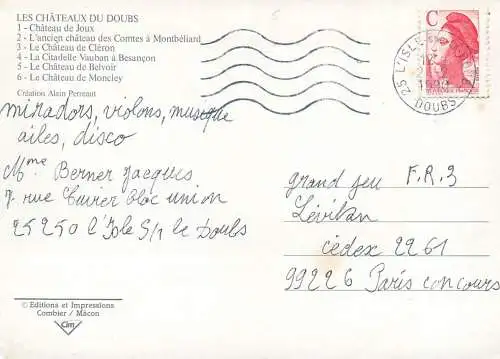 LES CHÂTEAUX DU DOUBS
1 - Château de Joux
2 - L'ancien château des Comtes à Montbéliard
3 - Le Château de Cléron
4 - La Citadelle Vauban à Besançon
5 - Le Château de Belvoir
6 - Le Château de Moncley
Création Alain Perreaut
miradors, violons, musique
ailes, disco
Mme Berner Jacques
rue Cuvier bloc union
25250 l'Isle S/r le Doubs
© Editions et Impressions
Combier / Mâcon
Cim
C
25 L'ISLE
DOUBS
grand jeu F.R.3
Lévitan
cédex 2261
99226 Paris concours